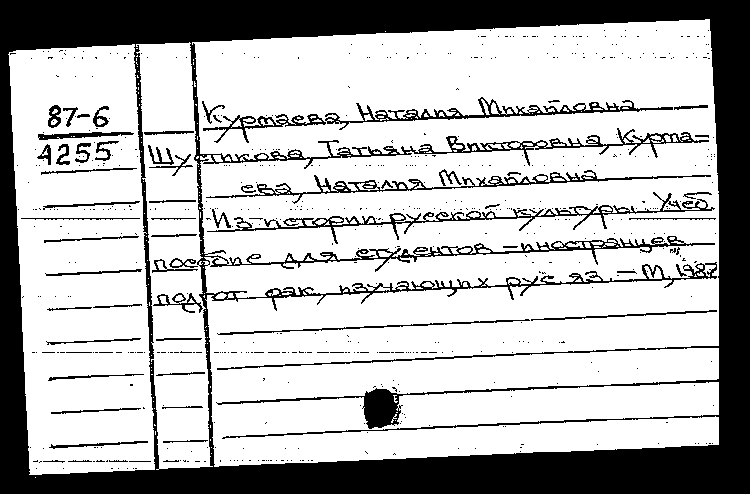 87-6
4255
Куртаева, Наталия Михайловна
Шустикова, Татьяна Викторовна, Курта=
ева, Наталия Михайловна
Из истории русской культуры: Учеб.
пособие для студентов-иностранцев
подгот. фак., изучающих рус. яз. - М., 1987